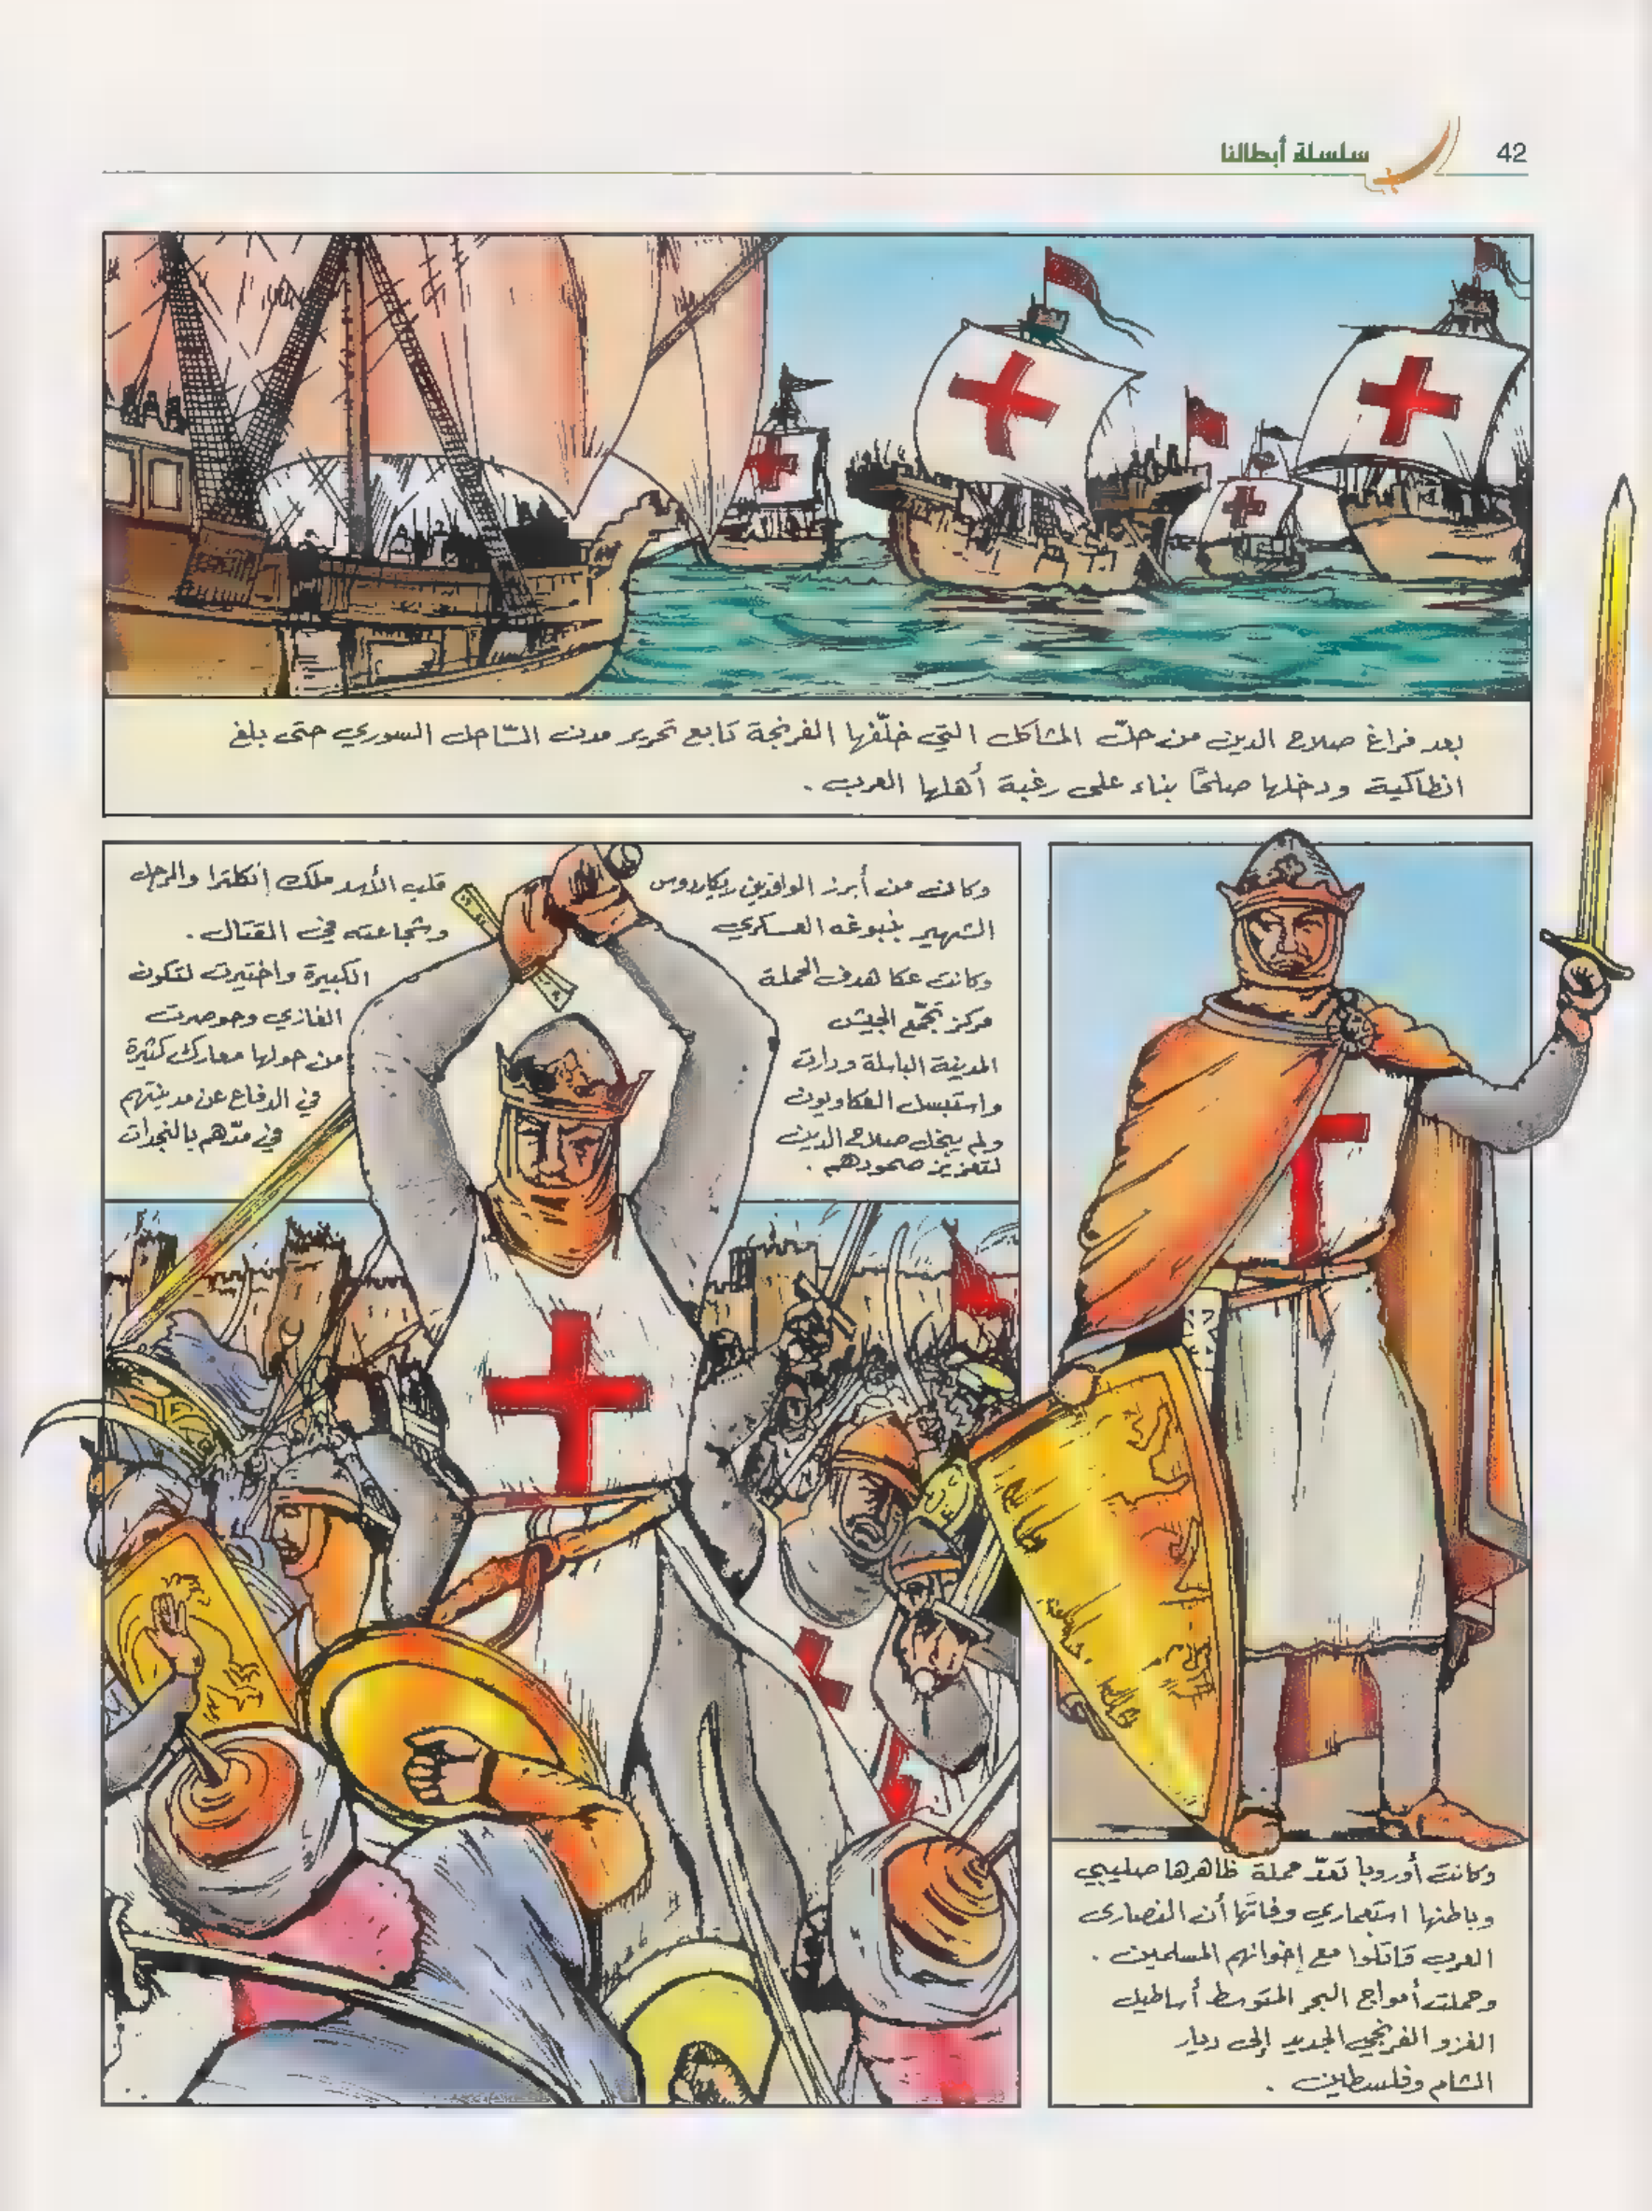 42
سلسلة أبطالنا
بعد فراغ صلاح الدين من حلّ المشاكل التي خلّفها الفرنجة تابع تحرير مدن السّاحل السوري حتى بلغ
انطاكية ودخلها صلحًا بناء على رغبة أهلها العرب .
وكانت أوروبا تعدّ حملة ظاهرها صليبي
وباطنها استعماري وفاتَها أن النصارى
العرب قاتلوا مع إخوانهم المسلمين .
وحملت أمواج البحر المتوسط أساطيل
الغزو الفرنجي الجديد إلى ديار
الشام وفلسطين .
وكان من أبرز الوافدين ريكاردوس قلب الأسد ملك إنكلترا والرجل
الشهير بنبوغه العسكري وشجاعته في القتال .
وكانت عكا هدف الحملة الكبيرة واختيرت لتكون
مركز تجمّع الجيش الغازي وحوصرت
المدينة الباسلة ودارت من حولها معارك كثيرة
واستبسل العكاويون في الدفاع عن مدينتهم
ولم يبخل صلاح الدين في مدّهم بالنجدات
لتعزيز صمودهم .